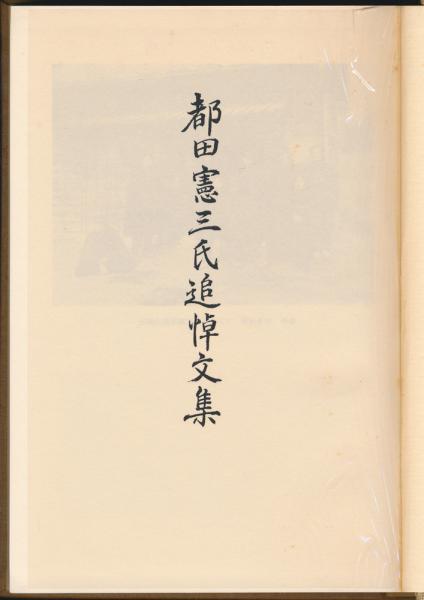 都田憲三氏追悼文集